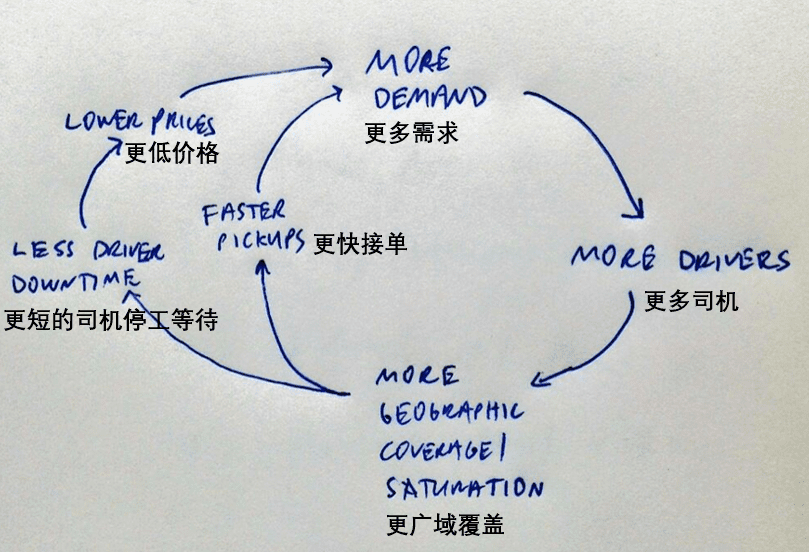 MORE
DEMAND
更多需求
LOWER PRICES
更低价格
FASTER
PICKUPS
更快接单
LESS DRIVER
DOWNTIME
更短的司机停工等待
MORE DRIVERS
更多司机
MORE
GEOGRAPHIC
COVERAGE/
SATURATION
更广域覆盖